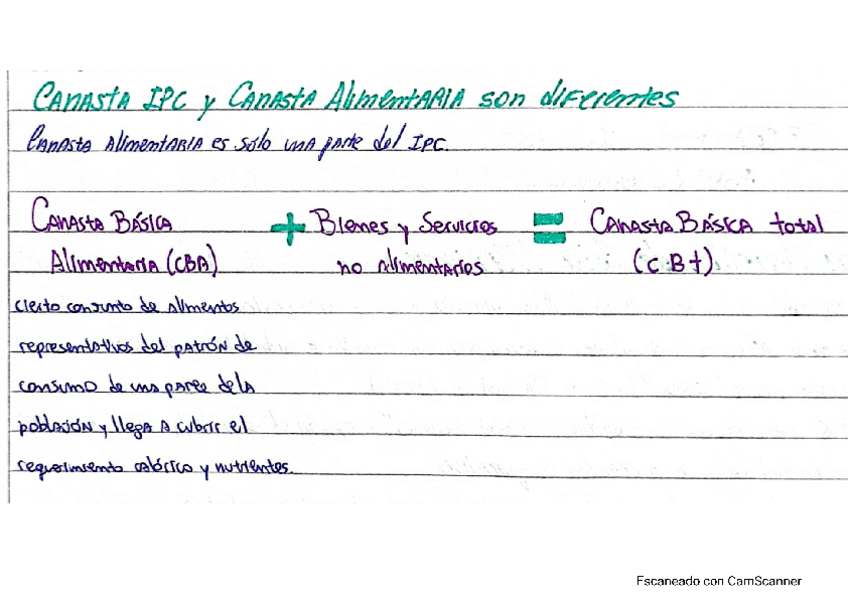 Canasta IPC y Canasta Alimentaria son diferentes
Canasta Alimentaria es solo una parte del IPC.
Canasta Básica + Bienes y Servicios = Canasta Básica total
Alimentaria (CBA) no alimentarios (CBt)
cierto conjunto de alimentos
representativos del patrón de
consumo de una parte de la
población y llega a cubrir el
requerimiento calórico y nutrientes.
Escaneado con CamScanner